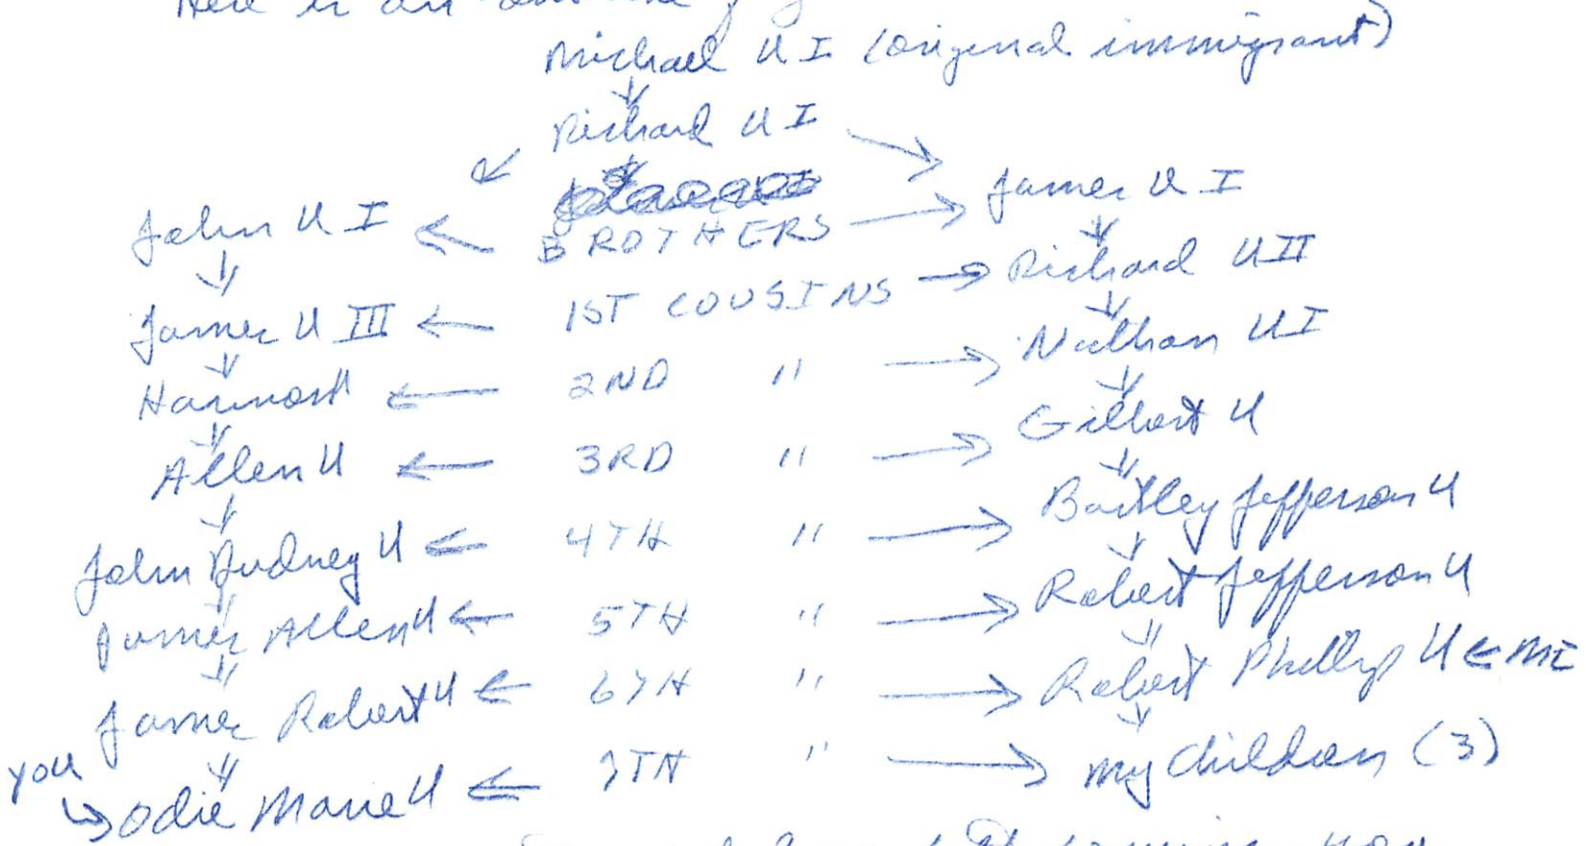 Here is an outline
Michael U I (original immigrant)
Richard U I
John U I ← BROTHERS → James U I
James U III ← 1ST COUSINS → Richard U II
← 2ND " → Nathan U I
Allen U ← 3RD " → Gilbert U
John Pudney U ← 4TH " → Bartley Jefferson U
James Allen U ← 5TH " → Robert Jefferson U
James Robert U ← 6TH " → Robert Phillip U ← ME
you → Odie Marie U ← 7TH " → my children (3)